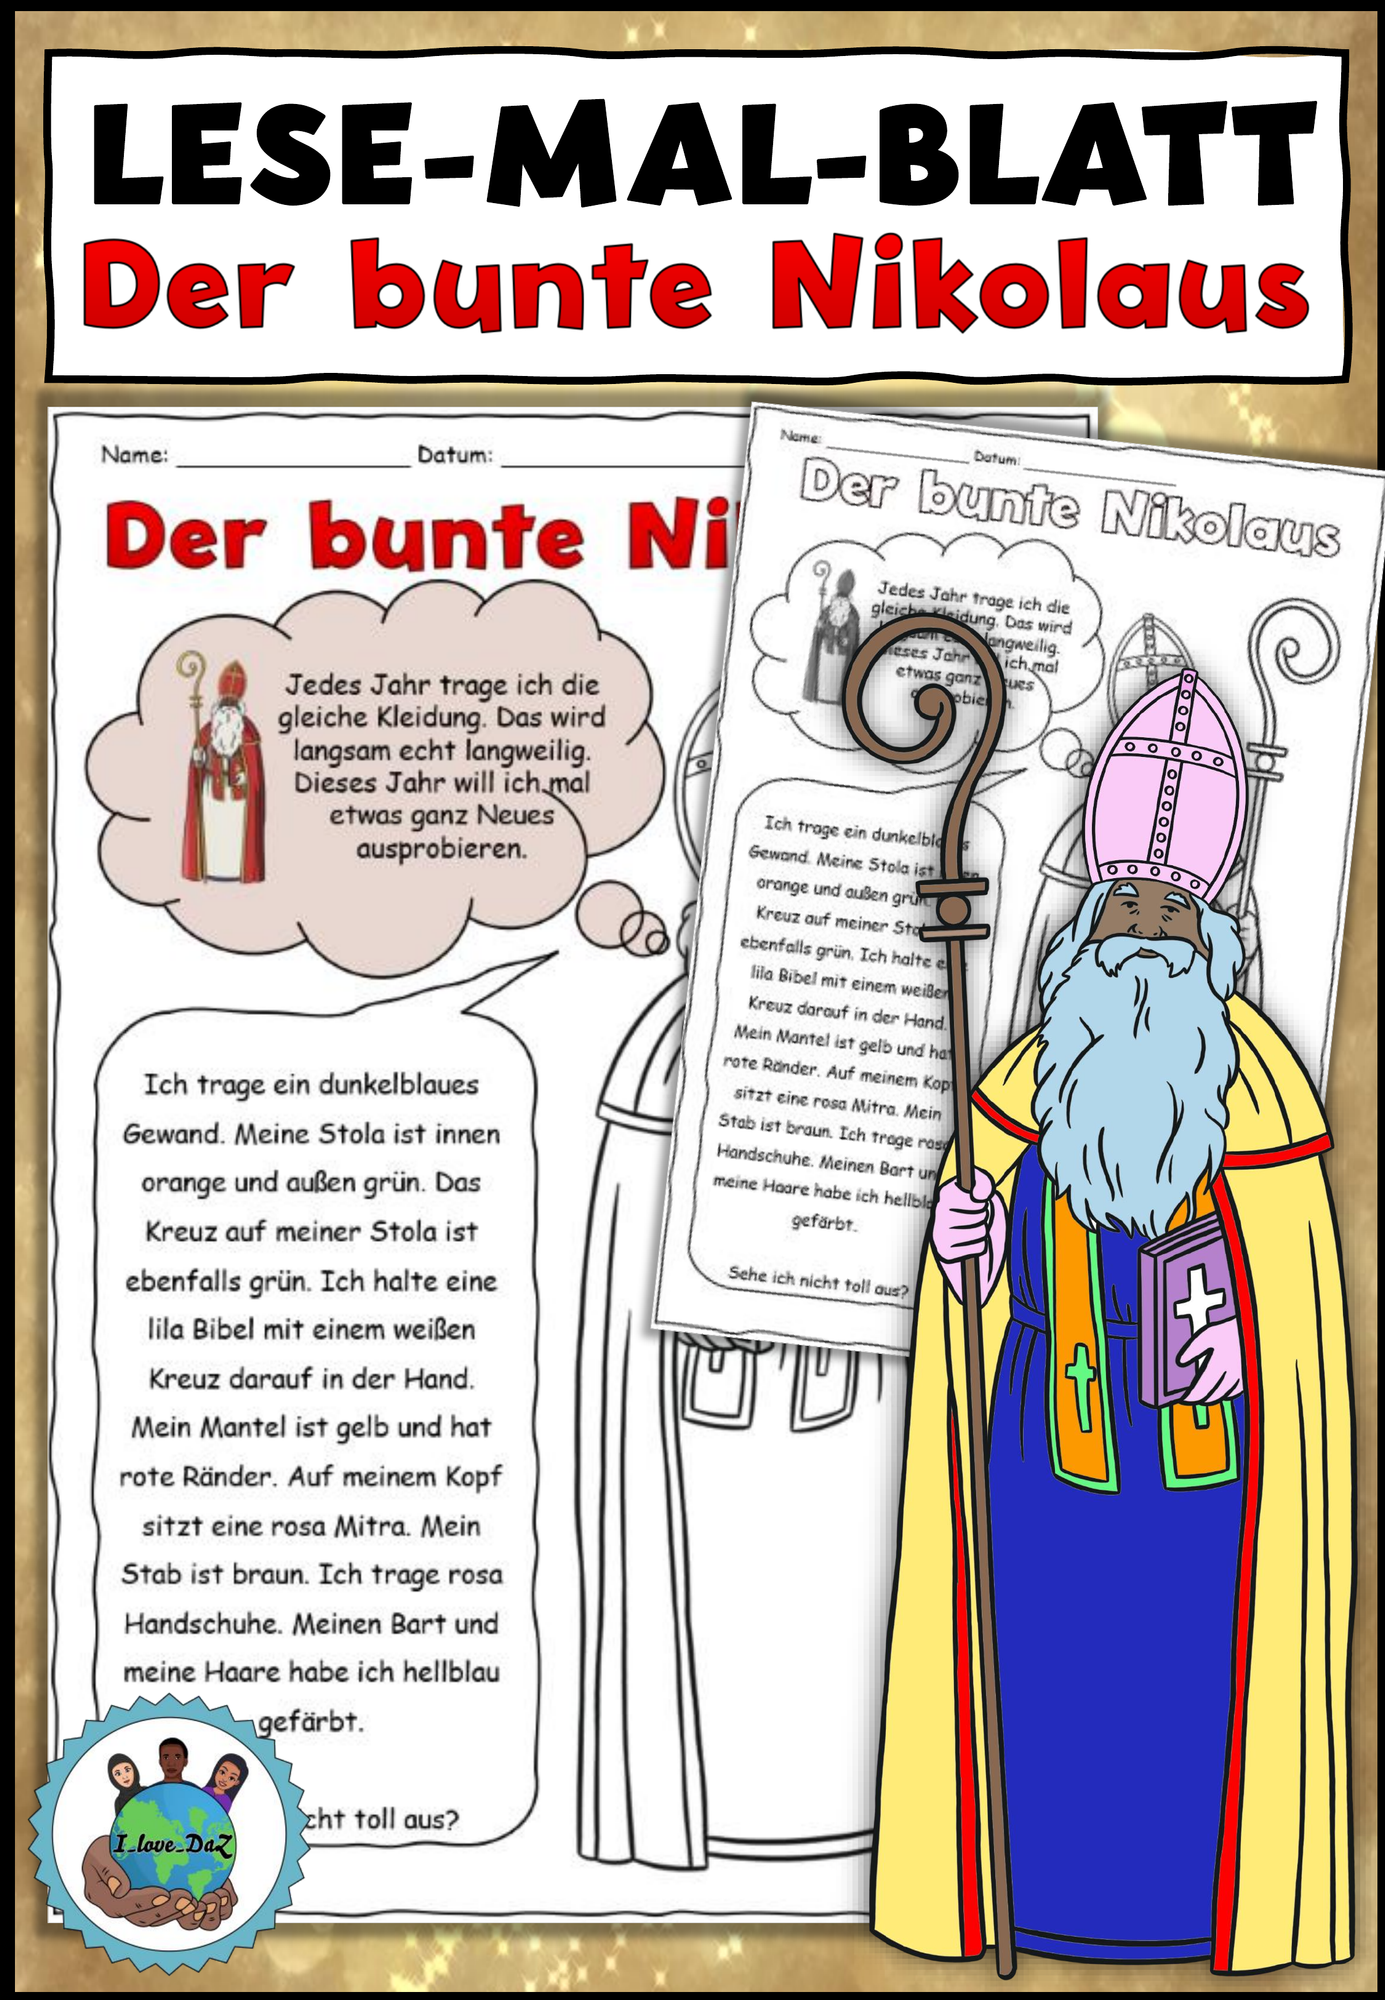 LESE-MAL-BLATT
Der bunte Nikolaus
Name: Datum:
Der bunte Ni
Jedes Jahr trage ich die
gleiche Kleidung. Das wird
langsam echt langweilig.
Dieses Jahr will ich mal
etwas ganz Neues
ausprobieren.
Ich trage ein dunkelblaues
Gewand. Meine Stola ist innen
orange und außen grün. Das
Kreuz auf meiner Stola ist
ebenfalls grün. Ich halte eine
lila Bibel mit einem weißen
Kreuz darauf in der Hand.
Mein Mantel ist gelb und hat
rote Ränder. Auf meinem Kopf
sitzt eine rosa Mitra. Mein
Stab ist braun. Ich trage rosa
Handschuhe. Meinen Bart und
meine Haare habe ich hellblau
gefärbt.
cht toll aus?
Name: Datum:
Der bunte Nikolaus
Jedes Jahr trage ich die
gleiche Kleidung. Das wird
langweilig.
ieses Jahr ich mal
etwas ganz ues
Ich trage ein dunkelbl
Gewand. Meine Stola ist
orange und außen grün.
Kreuz auf meiner Sto
ebenfalls grün. Ich halte e
lila Bibel mit einem weißen
Kreuz darauf in der Hand.
Mein Mantel ist gelb und ha
rote Ränder. Auf meinem Kopf
sitzt eine rosa Mitra. Mein
Stab ist braun. Ich trage rosa
Handschuhe. Meinen Bart un
meine Haare habe ich hellbl
gefärbt.
Sehe ich nicht toll aus?
I_love_DaZ